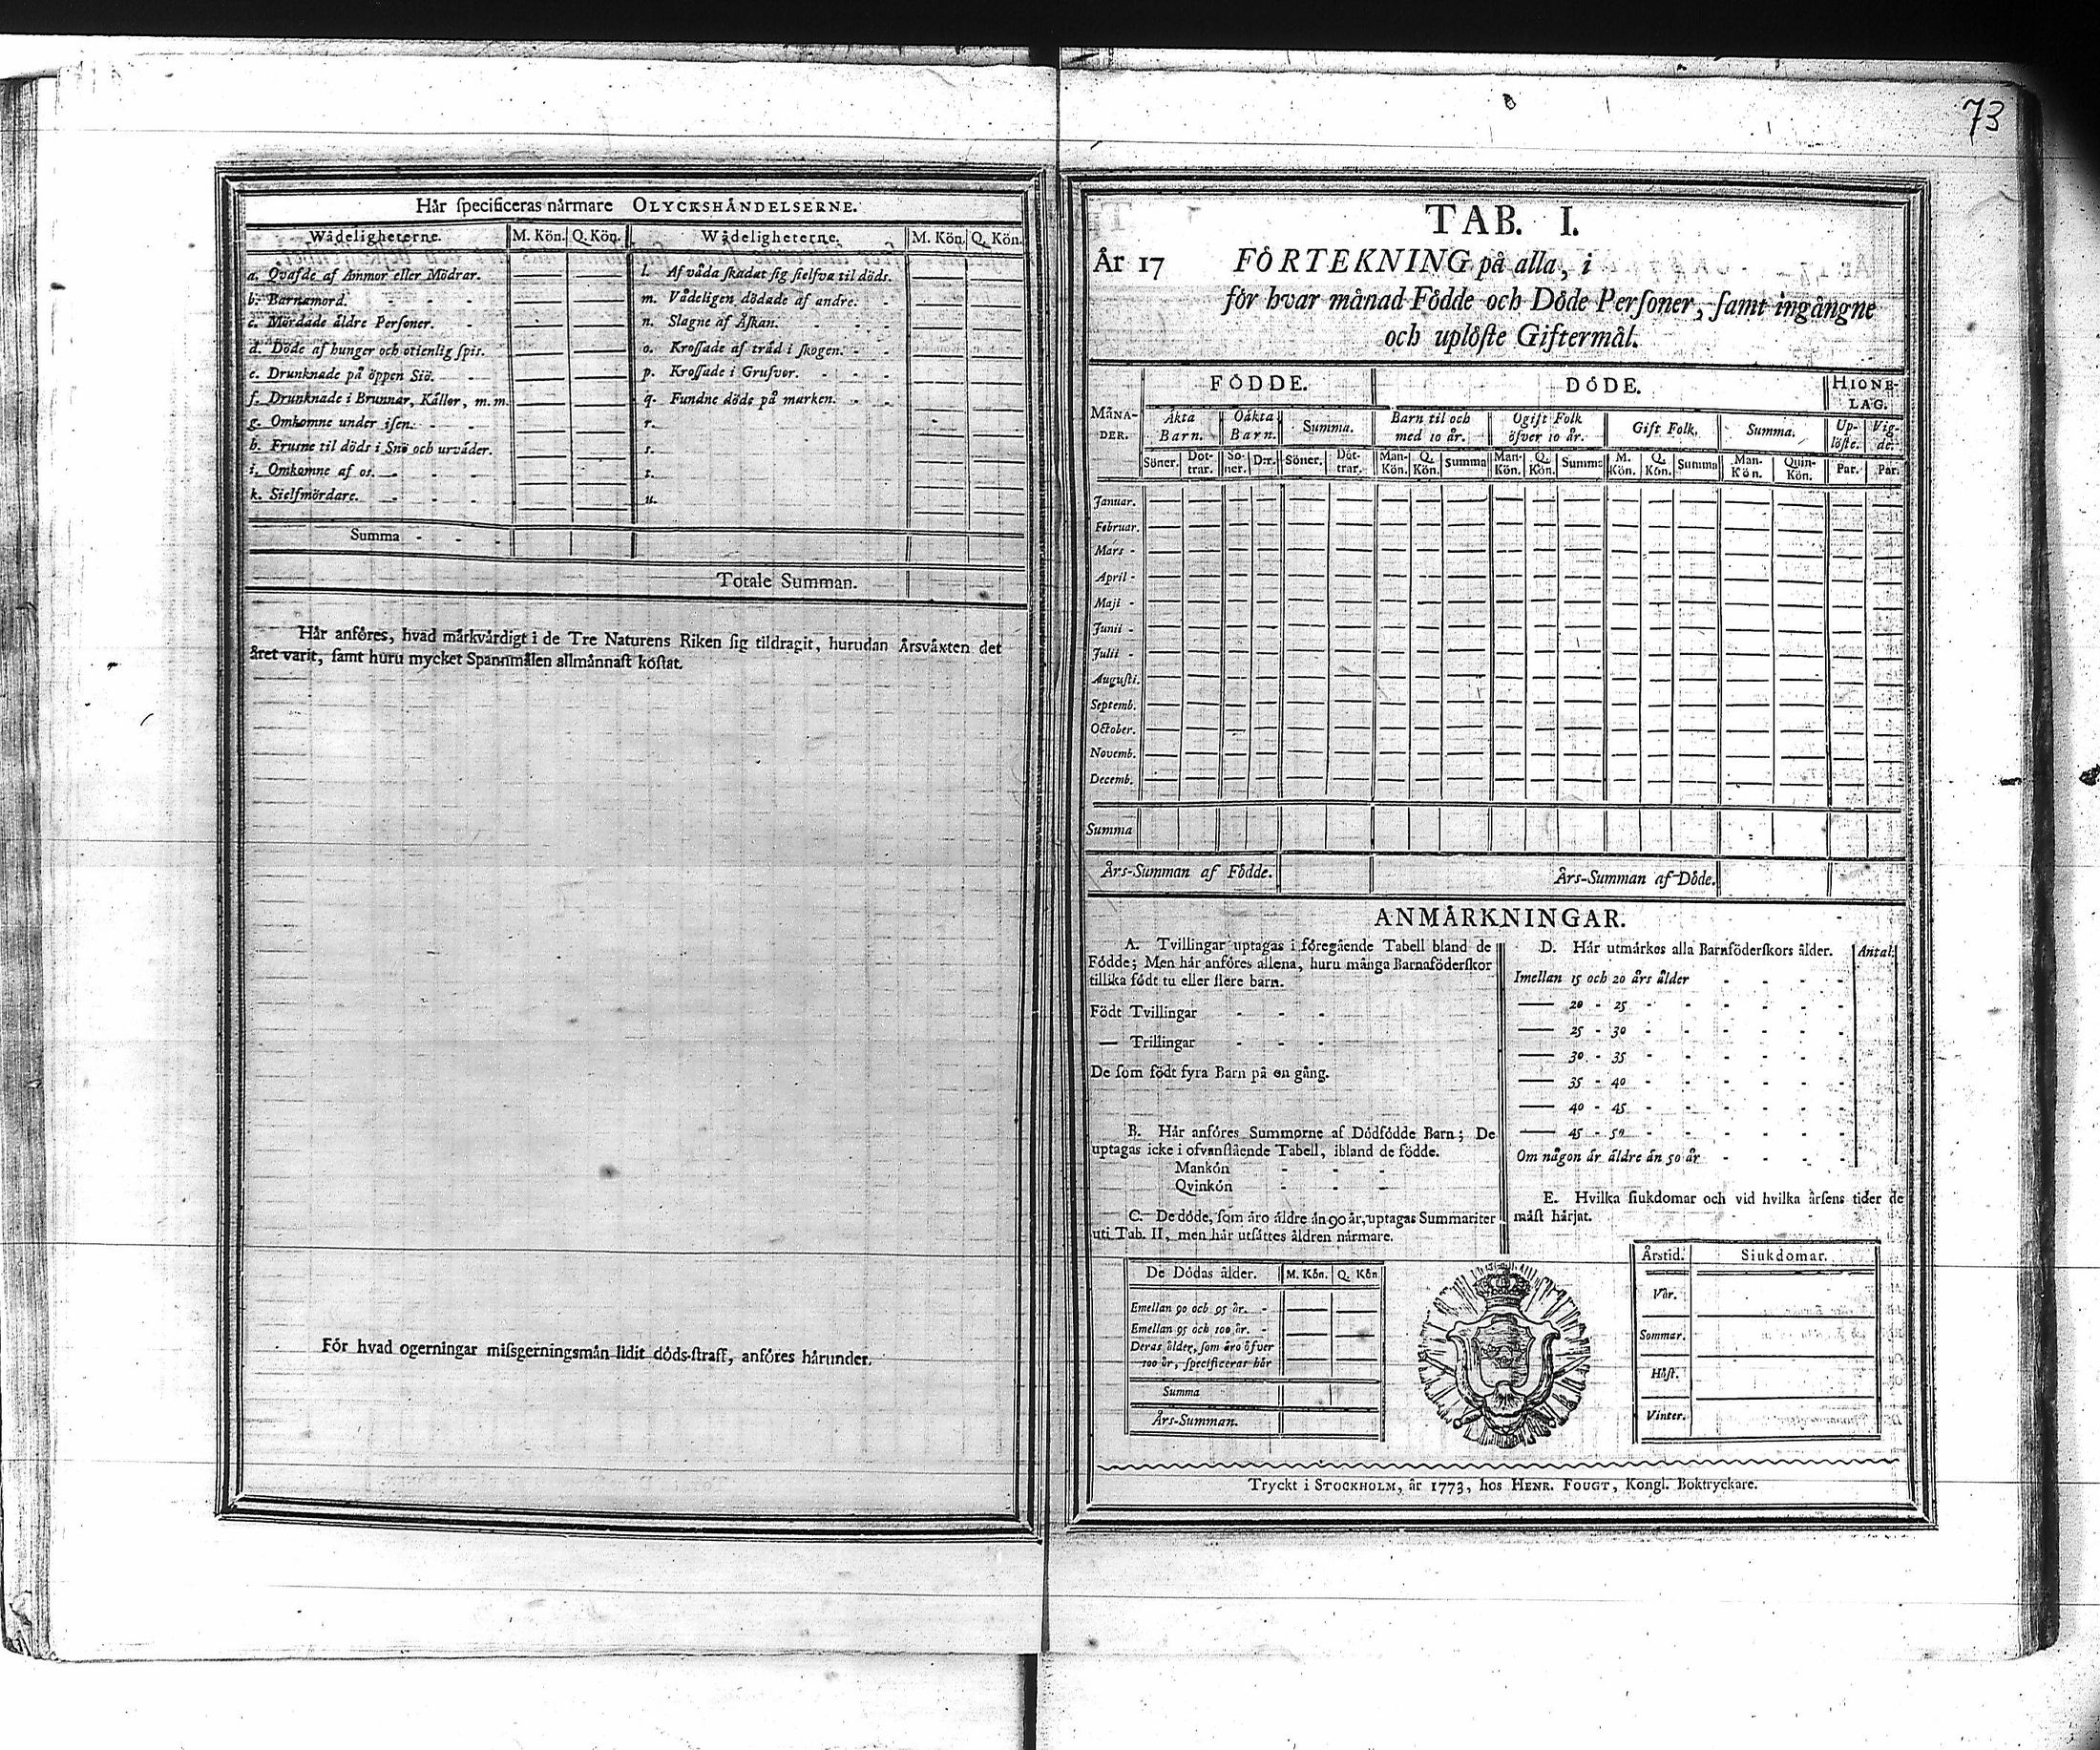 Hår ſpecificeras nårmare OLYCKSHÅNDELSERNE.
Wådeligheterne. M. Kön. Q. Kön. Wådeligheterne. M. Kön. Q. Kön.
a. Qvafde af Ammor eller Mödrar.
b. Barnamord.
c. Mördade äldre Perſoner.
d. Döde af hunger och otienlig ſpis.
e. Drunknade på öppen Siö.
f. Drunknade i Brunnar, Källor, m.m.
g. Omkomne under iſen.
h. Fruſne til döds i Snö och urväder.
i. Omkomne af os.
k. Sielfmördare.
l. Af våda ſkadat ſig ſielfva til döds.
m. Vådeligen dödade af andre.
n. Slagne af Åſkan.
o. Kroſſade af träd i ſkogen.
p. Kroſſade i Grufvor.
q. Fundne döde på marken.
r.
s.
t.
u.
Summa
Totale Summan.
Hår anföres, hvad mårkvårdigt i de Tre Naturens Riken ſig tildragit, hurudan Årsvåxten det
året varit, ſamt huru mycket Spannmålen allmånnaſt koſtat.
För hvad ogerningar miſsgerningsmån lidit döds-ſtraff, anföres hårunder.
73
TAB. I.
År 17 FÖRTEKNING på alla, i
för hvar månad Födde och Döde Perſoner, ſamt ingångne
och uplöſte Giftermål.
MÅNA-DER. FÖDDE. DÖDE. HIONE-LAG.
Äkta Barn. Oäkta Barn. Summa. Barn til och med 10 år. Ogift Folk öfver 10 år. Gift Folk. Summa. Up-löſte. Vig-de.
Söner. Döt-trar. Sö-ner. D:r. Söner. Döt-trar. Man-Kön. Q. Kön. Summa Man-Kön. Q. Kön. Summa M. Kön. Q. Kön. Summa Man-Kön. Quin-Kön. Par. Par.
Januar.
Februar.
Mars
April
Maji
Junii
Julii
Auguſti.
Septemb.
October.
Novemb.
Decemb.
Summa
Års-Summan af Födde. Års-Summan af Döde.
ANMÅRKNINGAR.
A. Tvillingar uptagas i föregående Tabell bland de
Födde; Men hår anföres allena, huru många Barnaföderſkor
tillika födt tu eller flere barn.
Födt Tvillingar
— Trillingar
De ſom födt fyra Barn på en gång.
B. Hår anföres Summorne af Dödfödde Barn; De
uptagas icke i ofvanſtående Tabell, ibland de födde.
Mankön
Qvinkön
C. De döde, ſom åro åldre ån 90 år, uptagas Summariter
uti Tab. II, men hår utſåttes åldren nårmare.
De Dödas ålder. M. Kön. Q. Kön
Emellan 90 och 95 år.
Emellan 95 och 100 år.
Deras ålder, ſom äro öfver
100 år, ſpecificeras här
Summa
Års-Summan.
D. Hår utmårkes alla Barnföderſkors ålder. Antal.
Imellan 15 och 20 års ålder
— 20 - 25
— 25 - 30
— 30 - 35
— 35 - 40
— 40 - 45
— 45 - 50
Om någon är äldre än 50 år
E. Hvilka ſiukdomar och vid hvilka årſens tider de
måſt hårjat.
Årstid. Siukdomar.
Vår.
Sommar.
Höſt.
Vinter.
Tryckt i STOCKHOLM, år 1773, hos HENR. FOUGT, Kongl. Boktryckare.